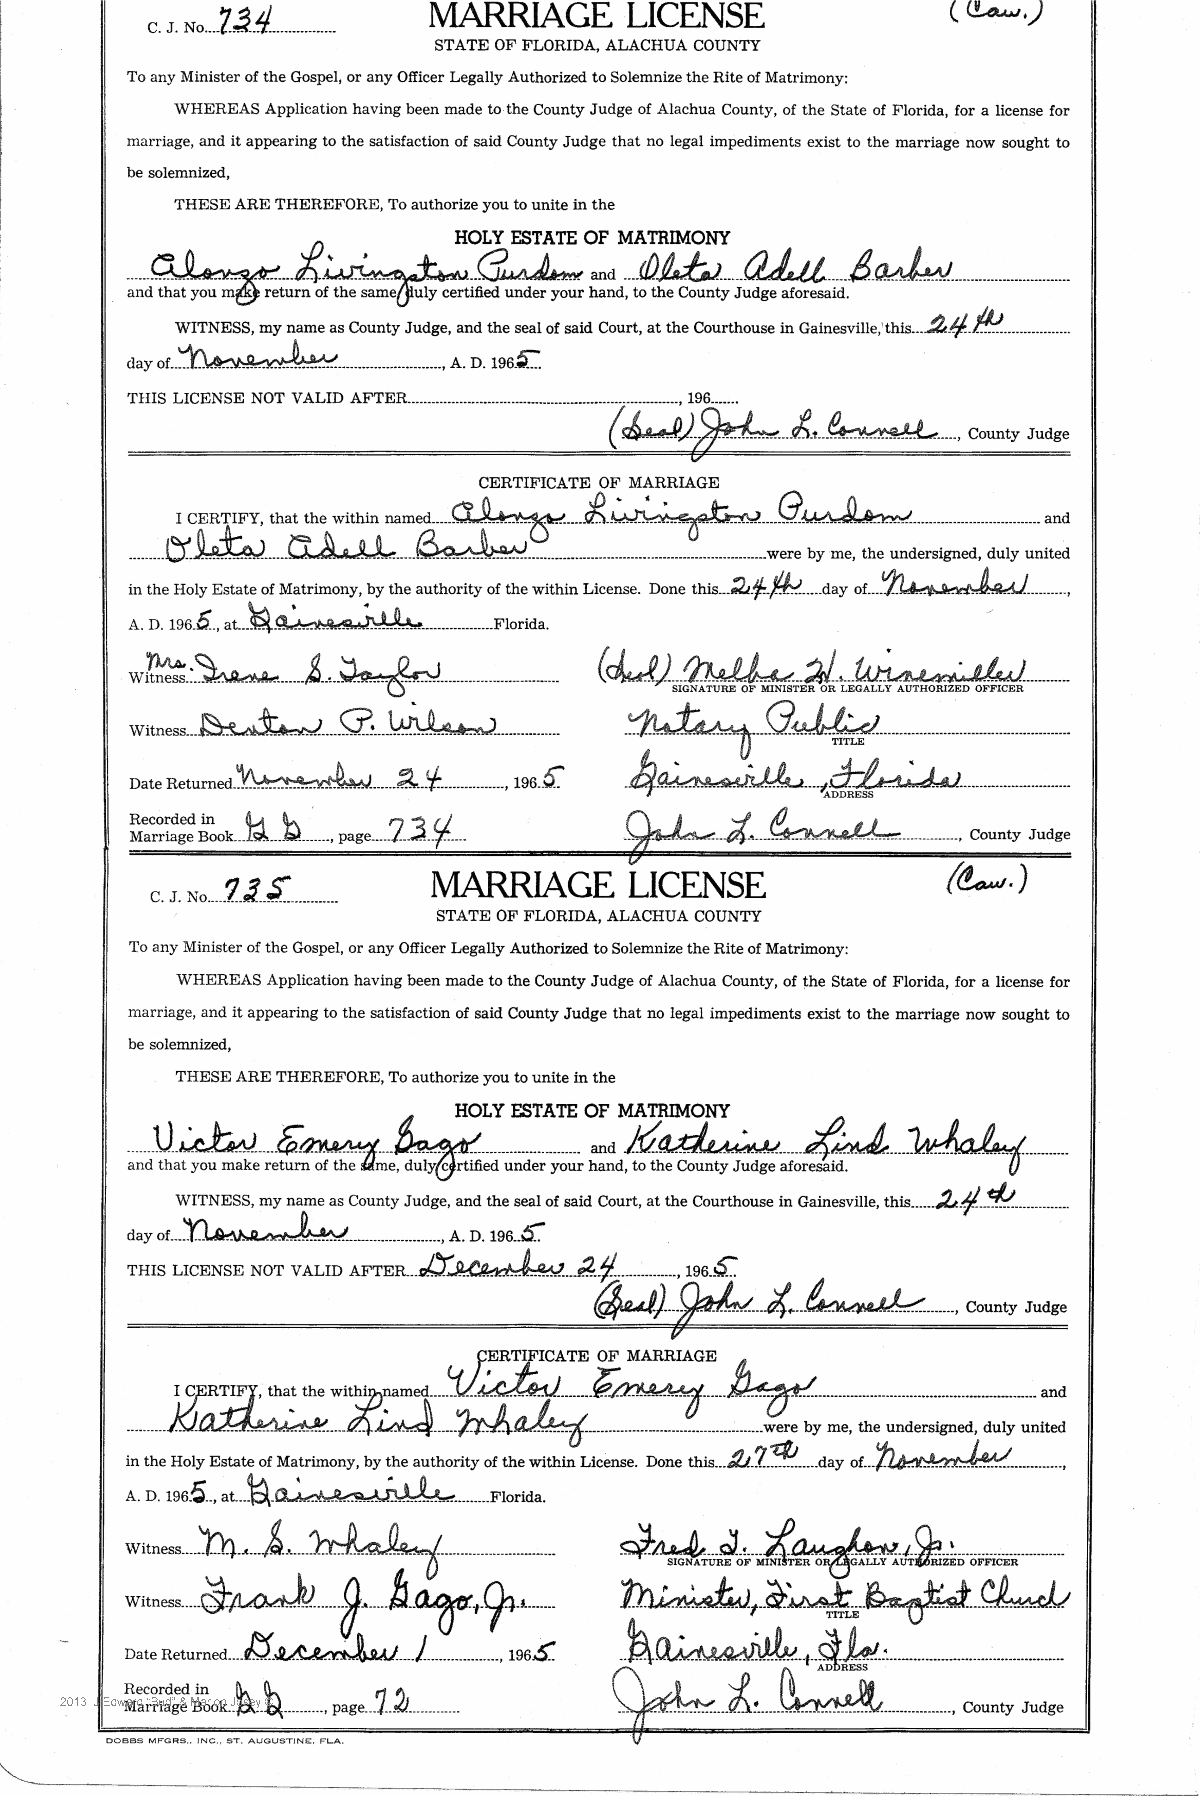 C. J. No. 734 MARRIAGE LICENSE (Caw.)
STATE OF FLORIDA, ALACHUA COUNTY
To any Minister of the Gospel, or any Officer Legally Authorized to Solemnize the Rite of Matrimony:
WHEREAS Application having been made to the County Judge of Alachua County, of the State of Florida, for a license for
marriage, and it appearing to the satisfaction of said County Judge that no legal impediments exist to the marriage now sought to
be solemnized,
THESE ARE THEREFORE, To authorize you to unite in the
HOLY ESTATE OF MATRIMONY
Alonzo Livingston Purdom and Oleta Adell Barber
and that you make return of the same, duly certified under your hand, to the County Judge aforesaid.
WITNESS, my name as County Judge, and the seal of said Court, at the Courthouse in Gainesville, this 24th
day of November, A. D. 1965
THIS LICENSE NOT VALID AFTER , 196
(Seal) John L. Connell, County Judge
CERTIFICATE OF MARRIAGE
I CERTIFY, that the within named Alonzo Livingston Purdom and
Oleta Adell Barber were by me, the undersigned, duly united
in the Holy Estate of Matrimony, by the authority of the within License. Done this 24th day of November,
A. D. 1965, at Gainesville Florida.
Witness Mrs. Irene S. Taylor (Seal) Melba H. Winemiller
SIGNATURE OF MINISTER OR LEGALLY AUTHORIZED OFFICER
Witness Denton P. Wilson Notary Public
TITLE
Date Returned November 24, 1965 Gainesville, Florida
ADDRESS
Recorded in
Marriage Book GG, page 734 John L. Connell, County Judge
C. J. No. 735 MARRIAGE LICENSE (Caw.)
STATE OF FLORIDA, ALACHUA COUNTY
To any Minister of the Gospel, or any Officer Legally Authorized to Solemnize the Rite of Matrimony:
WHEREAS Application having been made to the County Judge of Alachua County, of the State of Florida, for a license for
marriage, and it appearing to the satisfaction of said County Judge that no legal impediments exist to the marriage now sought to
be solemnized,
THESE ARE THEREFORE, To authorize you to unite in the
HOLY ESTATE OF MATRIMONY
Victor Emery Gago and Katherine Lind Whaley
and that you make return of the same, duly certified under your hand, to the County Judge aforesaid.
WITNESS, my name as County Judge, and the seal of said Court, at the Courthouse in Gainesville, this 24th
day of November, A. D. 1965
THIS LICENSE NOT VALID AFTER December 24, 1965
(Seal) John L. Connell, County Judge
CERTIFICATE OF MARRIAGE
I CERTIFY, that the within named Victor Emery Gago and
Katherine Lind Whaley were by me, the undersigned, duly united
in the Holy Estate of Matrimony, by the authority of the within License. Done this 27th day of November,
A. D. 1965, at Gainesville Florida.
Witness M. S. Whaley Fred T. Laughon, Jr.
SIGNATURE OF MINISTER OR LEGALLY AUTHORIZED OFFICER
Witness Frank J. Gago, Jr. Minister, First Baptist Church
TITLE
Date Returned December 1 1965 Gainesville, Fla.
ADDRESS
Recorded in
2013 J Edward "Bud" &
Marriage Book GG, page 72 John L. Connell, County Judge
DOBBS MFGRS., INC., ST. AUGUSTINE, FLA.